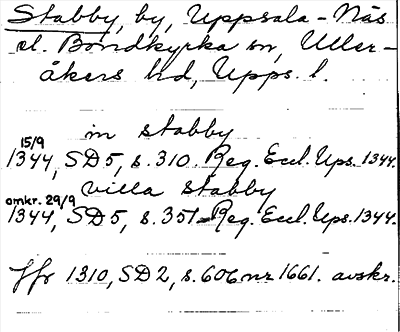 Stabby, by, Uppsala-Näs
el. Bondkyrka sn, Uller-
åkers hd, Upps. l.
in stabby
15/9
1344, SD 5, s. 310. Reg. Eccl. Ups. 1344.
villa stabby
omkr. 29/9
1344, SD 5, s. 351. Reg. Eccl. Ups. 1344.
Jfr 1310, SD. 2, s. 606 nr 1661. avskr.